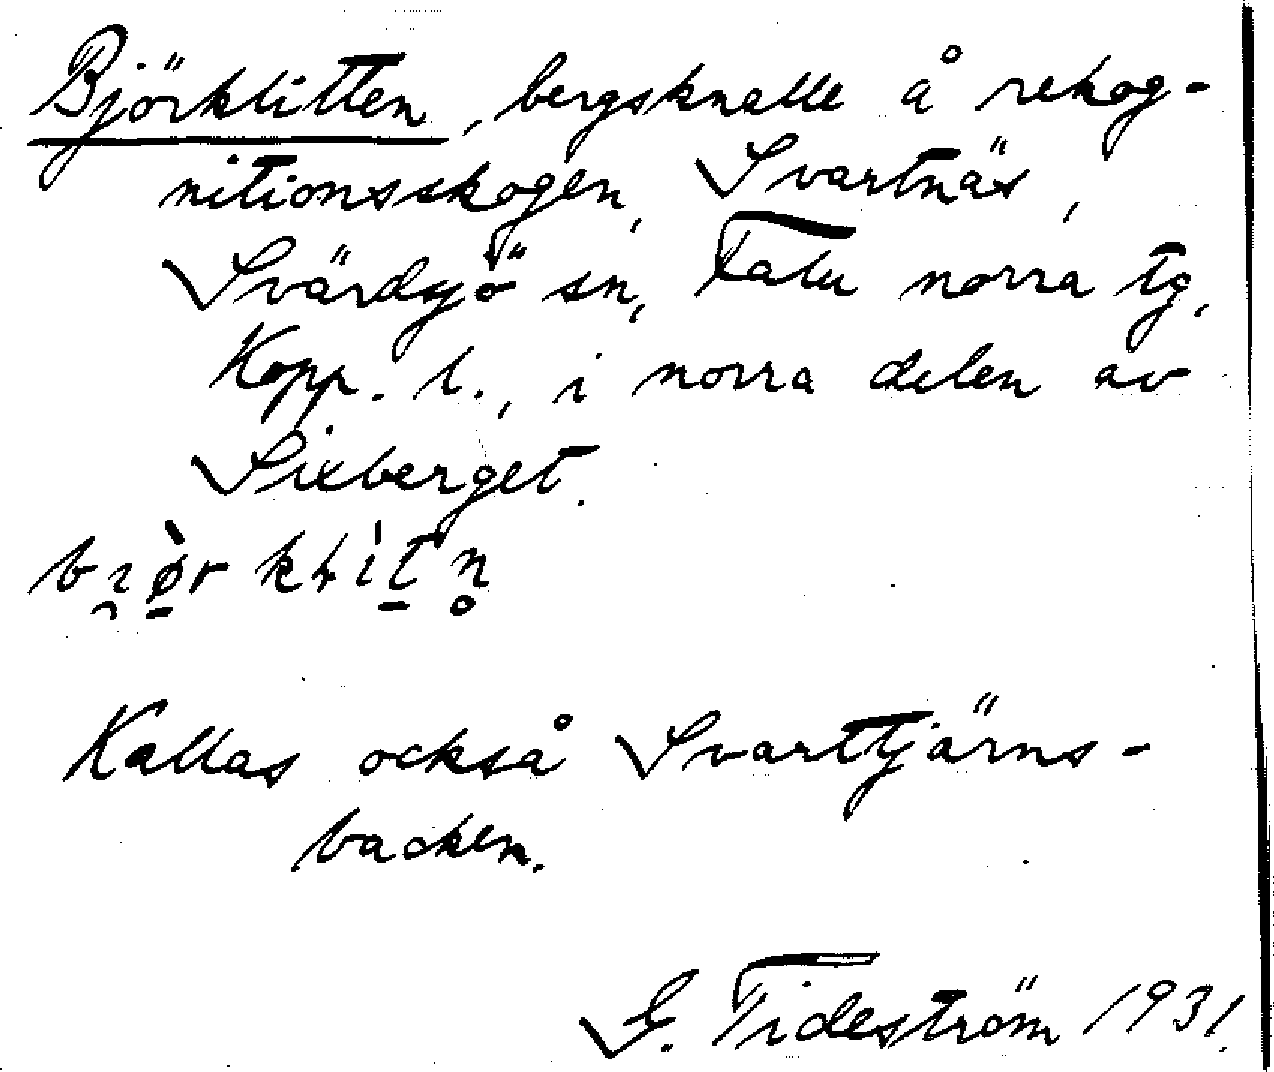 Björklitten, bergsknalle å rekog-
nitionsskogen, Svartnäs,
Svärdsjö sn, Falu norra tg,
Kopp. l., i norra delen av
Sixberget.
Kallas också Svarttjärns-
backen.
G. Tideström 1931.